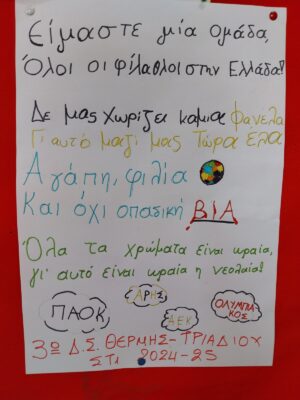 Είμαστε μία ομάδα,
Όλοι οι φίλαθλοι στην Ελλάδα!
Δε μας χωρίζει καμια φανελα
Γι αυτό μαζί μας Τώρα έλα
Αγάπη, φιλία
Και όχι οπαδική ΒΙΑ
Όλα τα χρώματα είναι ωραία,
γι' αυτό είναι ωραία η νεολαία!
ΠΑΟΚ
ΑΡΗΣ
ΑΕΚ
ΟΛΥΜΠΙΑ-
ΚΟΣ
3ο Δ.Σ. ΘΕΡΜΗΣ-ΤΡΙΑΔΙΟΥ
ΣΤ1 2024-25